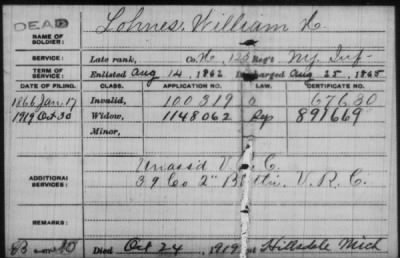 DEAD
NAME OF SOLDIER: Lohnes, William H.
SERVICE: Late rank, Co. H, 125 Reg't N.Y. Inf.
TERM OF SERVICE: Enlisted Aug 14, 1862 Discharged Aug 25, 1865
DATE OF FILING. CLASS. APPLICATION NO. LAW. CERTIFICATE NO.
1866 Jan 17 Invalid, 100319 67630
1919 Oct 30 Widow, 1148062 Rep 891669
Minor,
ADDITIONAL SERVICES: Unass'd V.R.C.
39 Co 2" Batt'n. V.R.C.
REMARKS:
Died Oct 24, 1919 at Hillsdale Mich